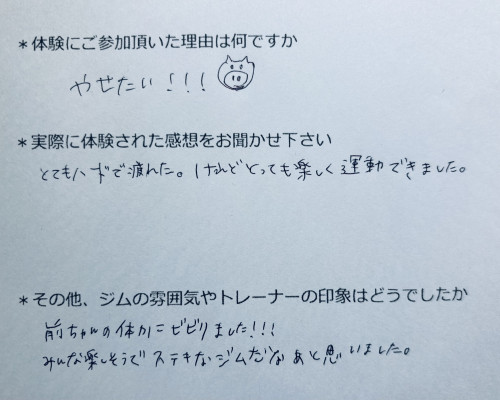 ＊体験にご参加頂いた理由は何ですか
やせたい！！！
＊実際に体験された感想をお聞かせ下さい
とてもハードで疲れた。けれどとっても楽しく運動できました。
＊その他、ジムの雰囲気やトレーナーの印象はどうでしたか
前ちゃんの体力にビビりました!!!
みんな楽しそうでステキなジムだなぁと思いました。